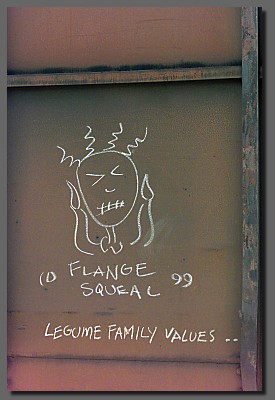 FLANGE
SQUEAL
LEGUME FAMILY VALUES ..